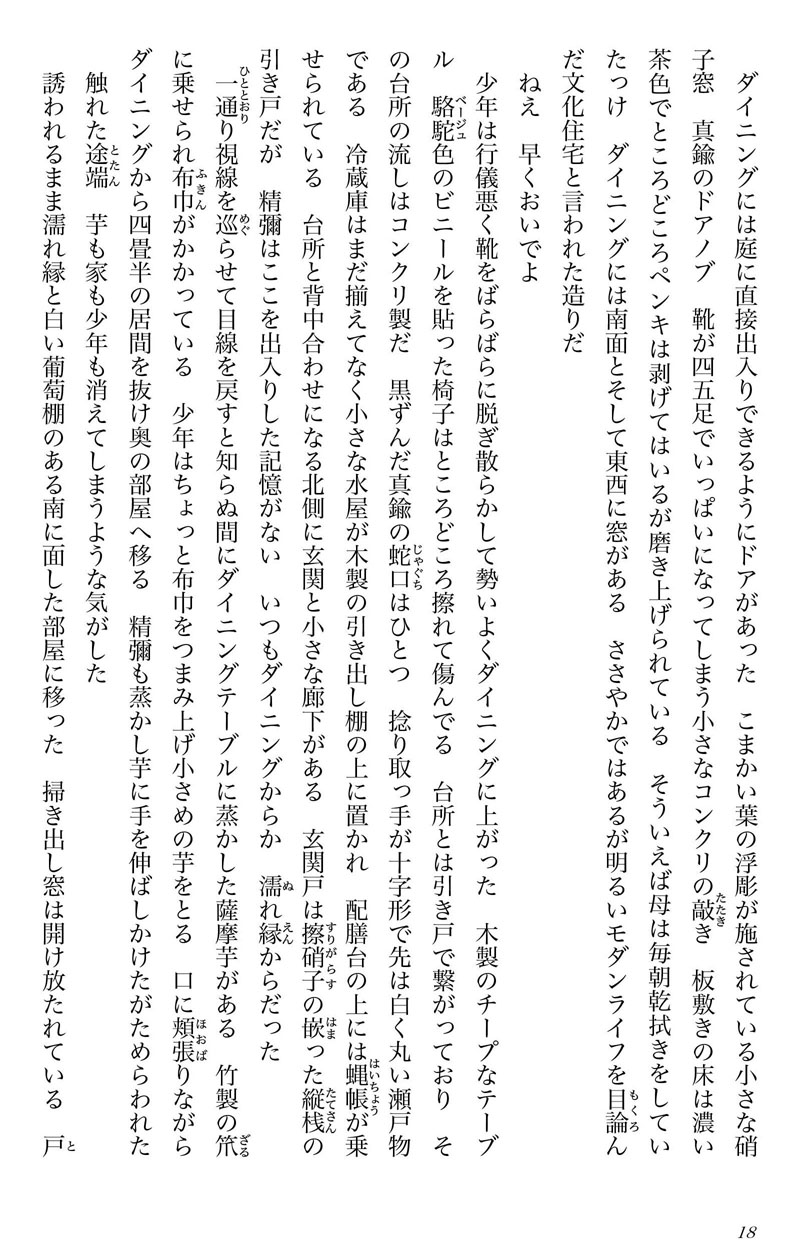 ダイニングには庭に直接出入りできるようにドアがあった　こまかい葉の浮彫が施されている小さな硝
子窓　真鍮のドアノブ　靴が四五足でいっぱいになってしまう小さなコンクリの敲き　板敷きの床は濃い
茶色でところどころペンキは剥げてはいるが磨き上げられている　そういえば母は毎朝乾拭きをしてい
たっけ　ダイニングには南面とそして東西に窓がある　ささやかではあるが明るいモダンライフを目論ん
だ文化住宅と言われた造りだ
ねえ　早くおいでよ
少年は行儀悪く靴をばらばらに脱ぎ散らかして勢いよくダイニングに上がった　木製のチープなテーブ
ル　駱駝色のビニールを貼った椅子はところどころ擦れて傷んでる　台所とは引き戸で繋がっており　そ
の台所の流しはコンクリ製だ　黒ずんだ真鍮の蛇口はひとつ　捻り取っ手が十字形で先は白く丸い瀬戸物
である　冷蔵庫はまだ揃えてなく小さな水屋が木製の引き出し棚の上に置かれ　配膳台の上には蝿帳が乗
せられている　台所と背中合わせになる北側に玄関と小さな廊下がある　玄関戸は擦硝子の嵌った縦桟の
引き戸だが　精彌はここを出入りした記憶がない　いつもダイニングからか　濡れ縁からだった
一通り視線を巡らせて目線を戻すと知らぬ間にダイニングテーブルに蒸かした薩摩芋がある　竹製の笊
に乗せられ布巾がかかっている　少年はちょっと布巾をつまみ上げ小さめの芋をとる　口に頬張りながら
ダイニングから四畳半の居間を抜け奥の部屋へ移る　精彌も蒸かし芋に手を伸ばしかけたがためらわれた
触れた途端　芋も家も少年も消えてしまうような気がした
誘われるまま濡れ縁と白い葡萄棚のある南に面した部屋に移った　掃き出し窓は開け放たれている　戸
18